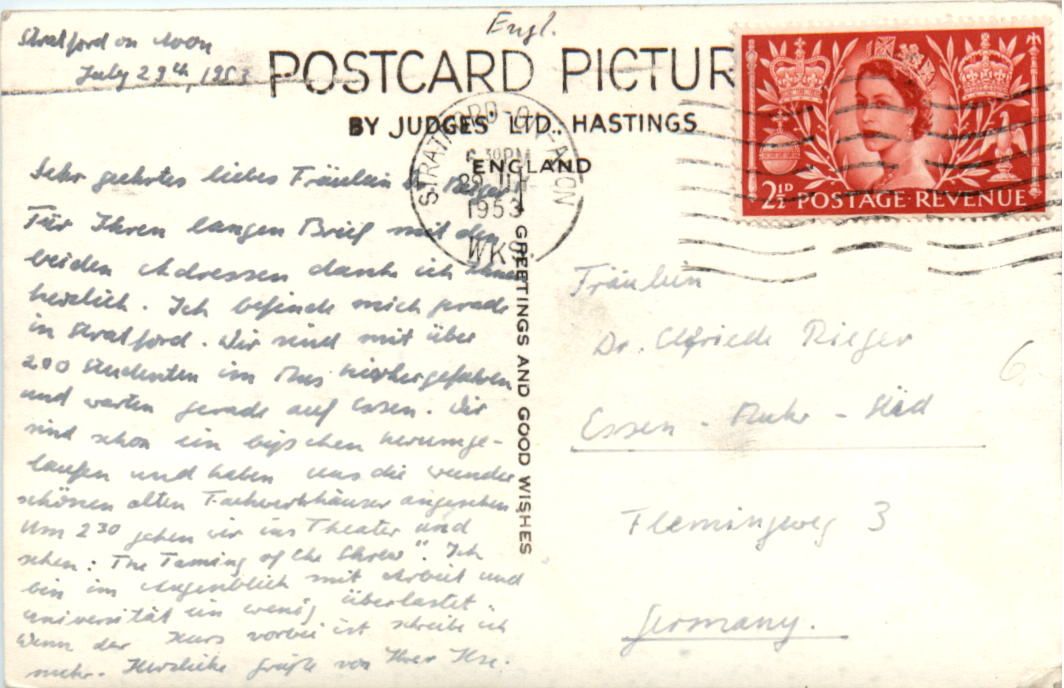 Engl.
Stratford on Avon
July 29th, 1953
POSTCARD PICTUR
BY JUDGES' LTD., HASTINGS
ENGLAND
STRATFORD-O-AVON
6 30 PM
29 JLY
1953
WKS.
2½D POSTAGE REVENUE
Sehr geehrtes liebes Fräulein Dr. Rieger
Für Ihren langen Brief mit den
beiden Adressen danke ich Ihnen
herzlich. Ich befinde mich gerade
in Stratford. Wir sind mit über
200 Studenten im Bus hierhergefahren
und warten gerade auf Essen. Wir
sind schon ein bißchen herumge-
laufen und haben uns die wunder
schönen alten Fachwerkhäuser angesehen
Um 2 30 gehen wir ins Theater und
sehen: The Taming of the Shrew". Ich
bin im Augenblick mit Arbeit und
Universität ein wenig überlastet.
Wenn der Kurs vorbei ist schreibe ich
mehr. Herzliche Grüße von Ihrer Ilse.
GREETINGS AND GOOD WISHES
Fräulein
Dr. Elfriede Rieger
Essen - Ruhr - Süd
Flemingweg 3
Germany.
6.